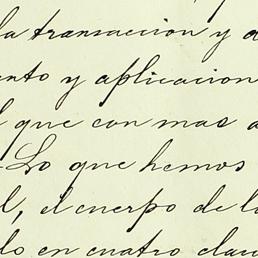 la transaccion y a
ento y aplicacion
l que con mas a
-Lo que hemos
l, el cuerpo de la
do en cuatro clau